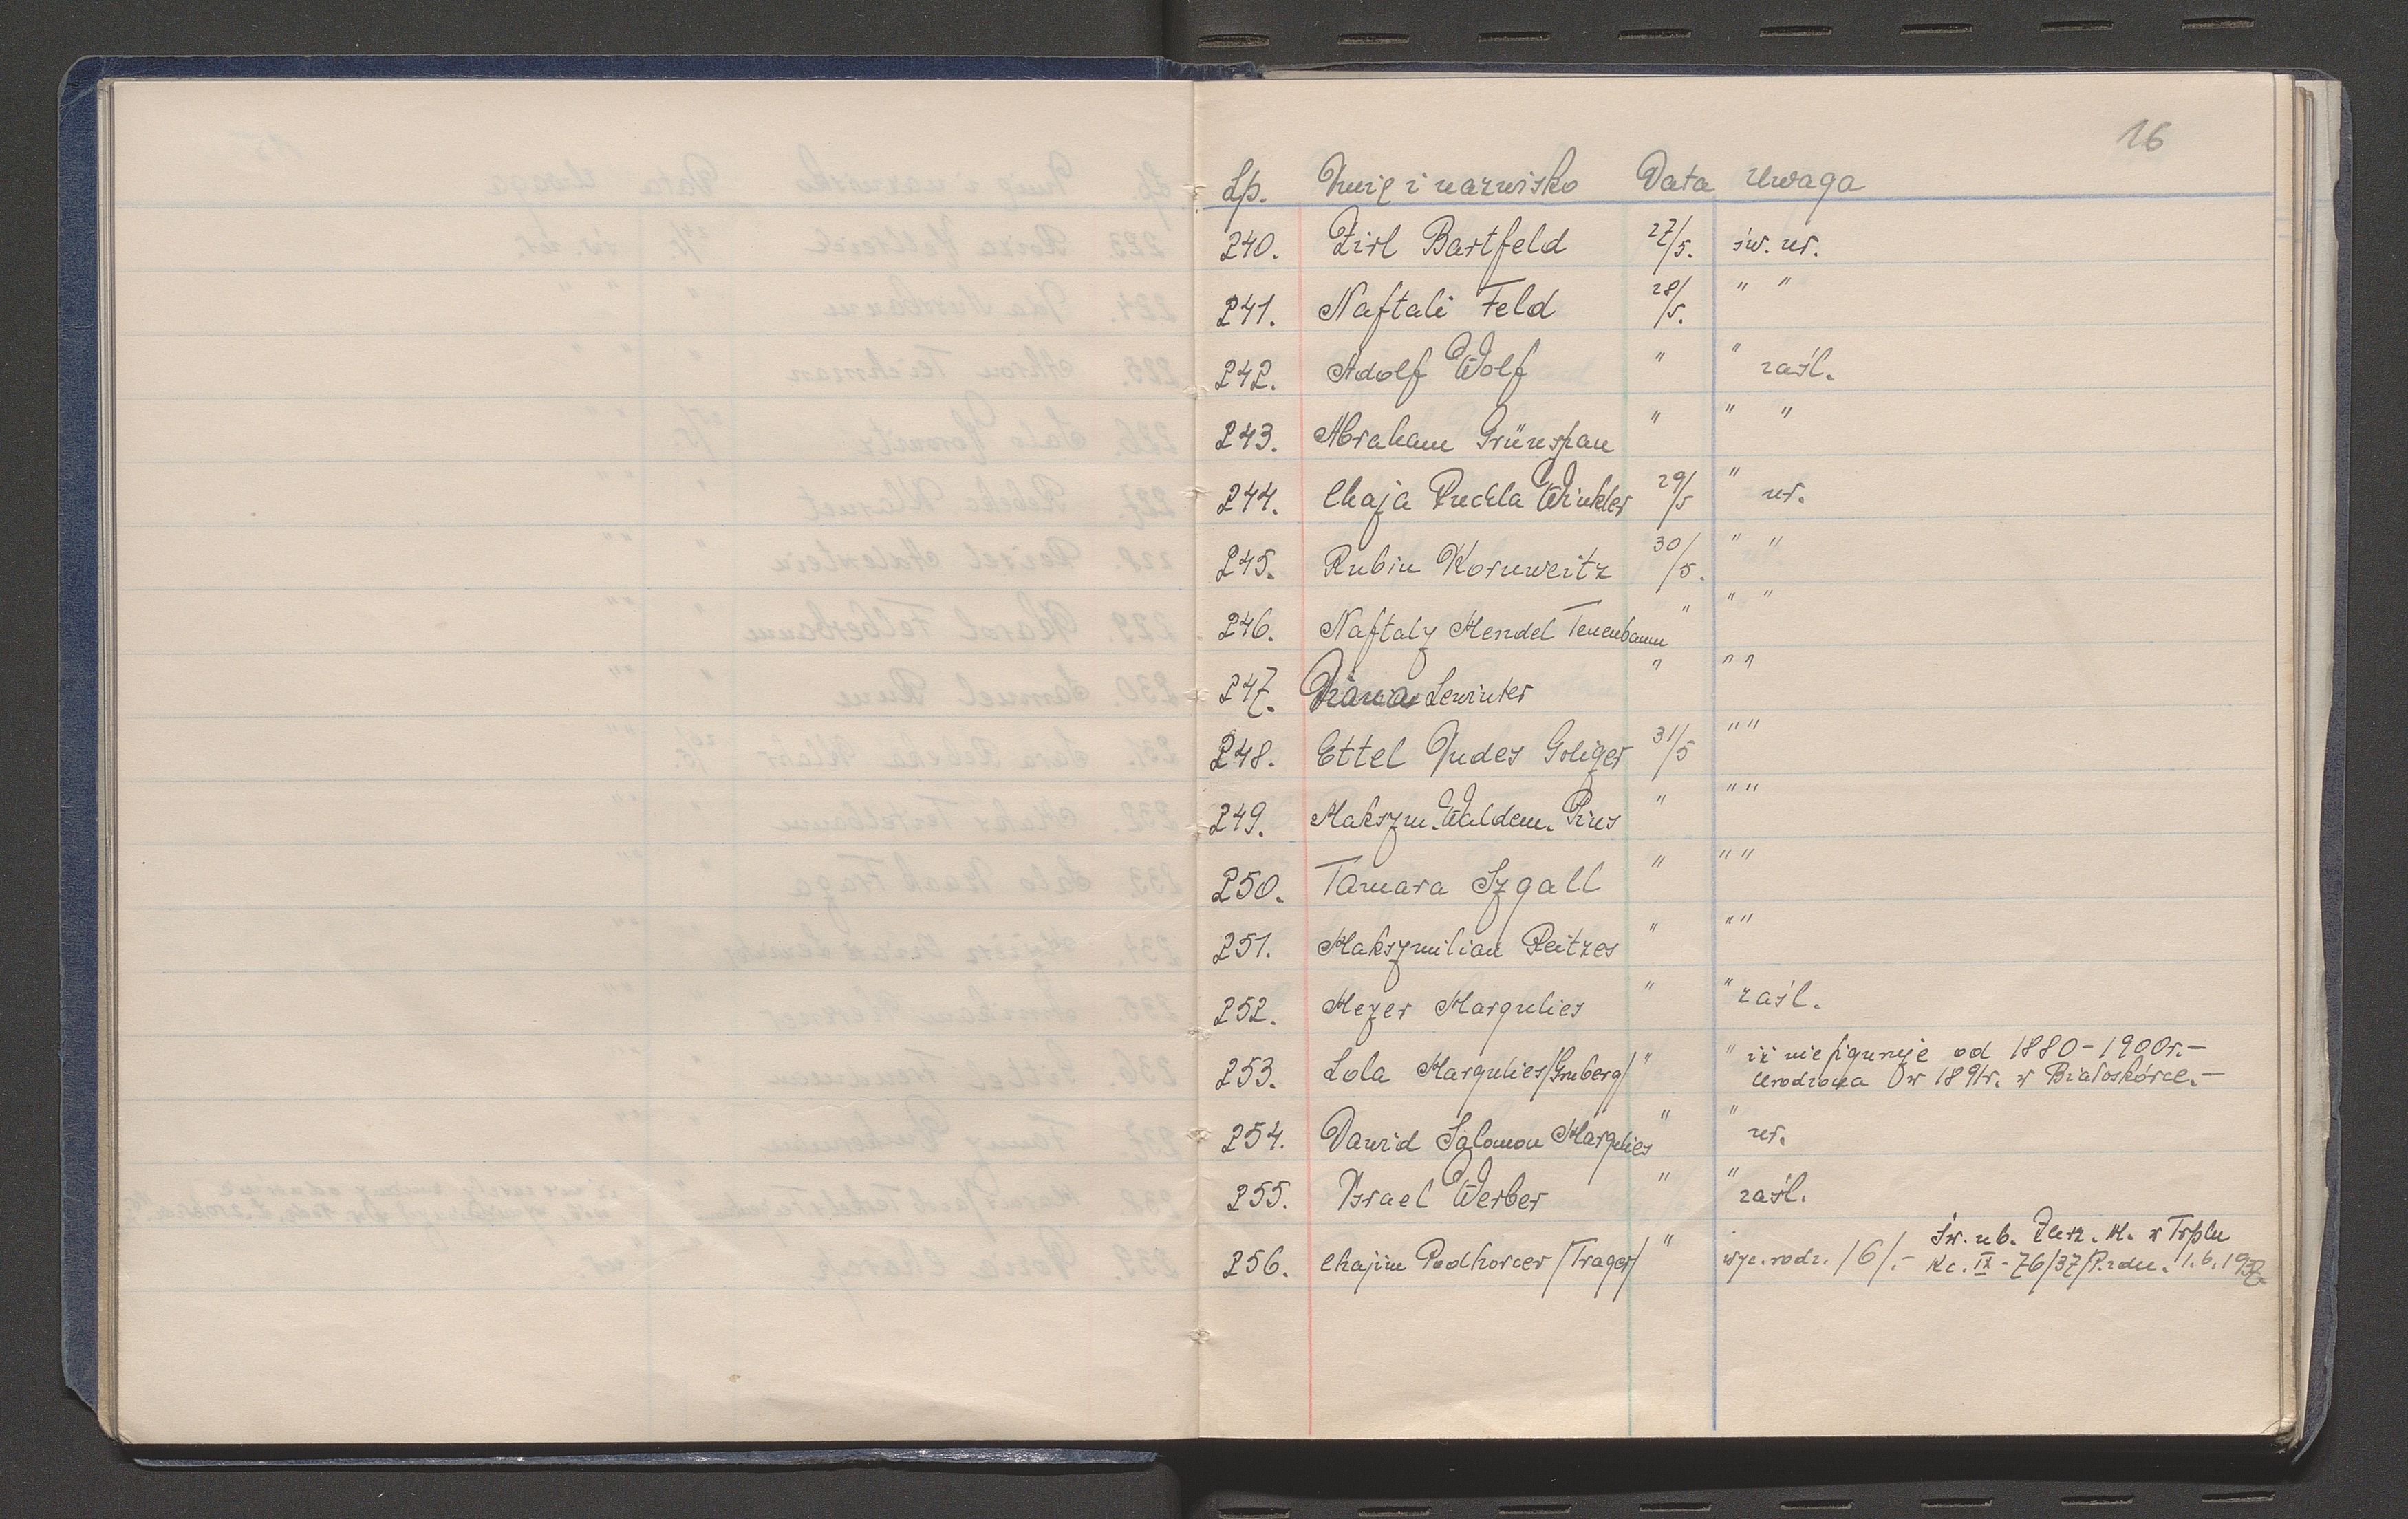 16
Lp. Imię i nazwisko Data Uwaga
240. Zirl Bartfeld 27/5. św. ur.
241. Naftali Feld 28/5. " "
242. Adolf Wolf " " zaśl.
243. Abraham Grünspan " " "
244. Chaja Ruchla Winkler 29/5 " ur.
245. Rubin Kornweitz 30/5. " "
246. Naftaly Mendel Tenenbaum " " "
247. Lewinter " " "
248. Ettel Judes Goliger 31/5 " "
249. Maksym. Waldem. Pins " " "
250. Tamara Szgall " " "
251. Maksymilian Reitzes " " "
252. Mezer Margulies " " zaśl.
253. Lola Margulies /Gruberg/ " " iż nie figuruje od 1880-1900r.-
Urodzona w 1891r. w Białoskórce.-
254. Dawid Salomon Margulies " " ur.
255. Israel Werber " " zaśl.
256. Chajim Podhorcer /Trager/ " wyc. rodz. /6/.- Św. ub. M. w Trplu
Kc. IX-76/37/P.zdu. 1.6.1937.